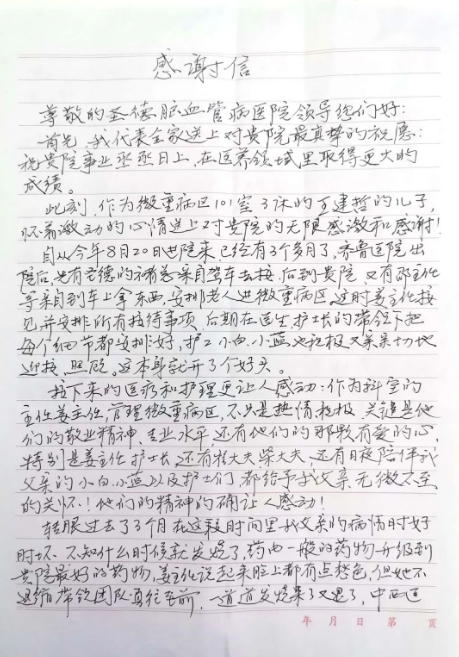 感谢信
尊敬的圣德脑血管病医院领导您们好:
首先,我代表全家送上对贵院最真挚的祝愿:
祝贵院事业蒸蒸日上,在医养领域里取得更大的
成绩。
此刻,作为微重病区101室3床的王建哲的儿子,
怀着激动的心情送上对贵院的无限感激和感谢!
自从今年8月20日出院来,已经有3个多月了,齐鲁医院出
院后,是有圣德的褚总亲自驾车去接,后到贵院,又有邵主任
等亲自到车上拿东西,安排老人进微重病区,这时姜主任接
见并安排所有接待事项,后期在医生护士长的带领下把
每个细节都安排好,护工小白、小蓝也积极又亲亲切切地
迎接、照顾,这本身就开了个好头。
接下来的医疗和护理更让人感动:作为科室的
主任姜主任,管理微重病区,不只是热情积极,关键是他
们的敬业精神,专业水平还有他们的那颗有爱的心,
特别是姜主任、护士长,还有大夫柴大夫,还有日夜陪伴我
父亲的小白、小蓝以及护士们都给予我父亲无微不至
的关怀!他们的精神的确让人感动!
转眼过去了3个月,在这段时间里我父亲的病情时好
时坏,不知什么时候就发烧了,药由一般的药物升级到
贵院最好的药物,姜主任说起来脸上都有点愁色,但她不
退缩,带领团队勇往直前,一道道发烧来了又退了,中西医
年 月 日 第 页